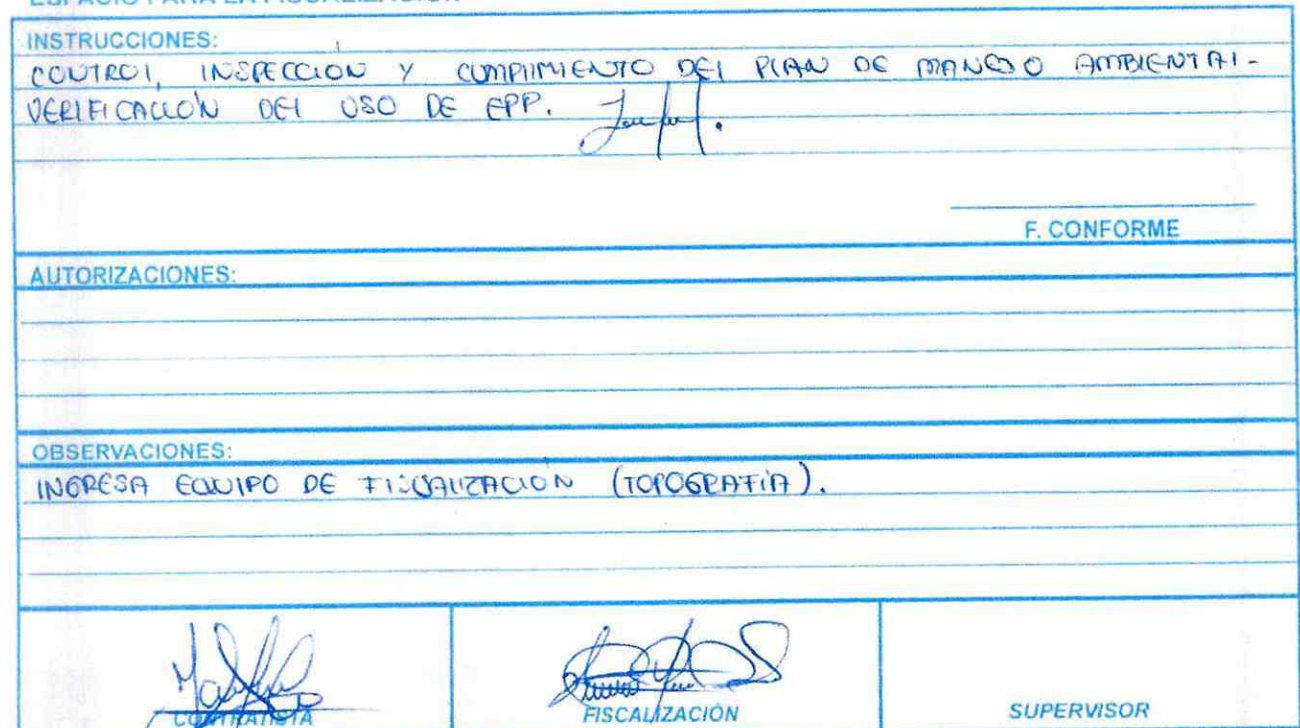 ESPACIO PARA LA FISCALIZACIÓN
INSTRUCCIONES:
CONTROL, INSPECCION Y CUMPLIMIENTO DEL PLAN DE MANEJO AMBIENTAL-
VERIFICACIÓN DEL USO DE EPP.
F. CONFORME
AUTORIZACIONES:
OBSERVACIONES:
INGRESA EQUIPO DE FISCALIZACION (TOPOGRAFÍA).
CONTRATISTA
FISCALIZACIÓN
SUPERVISOR